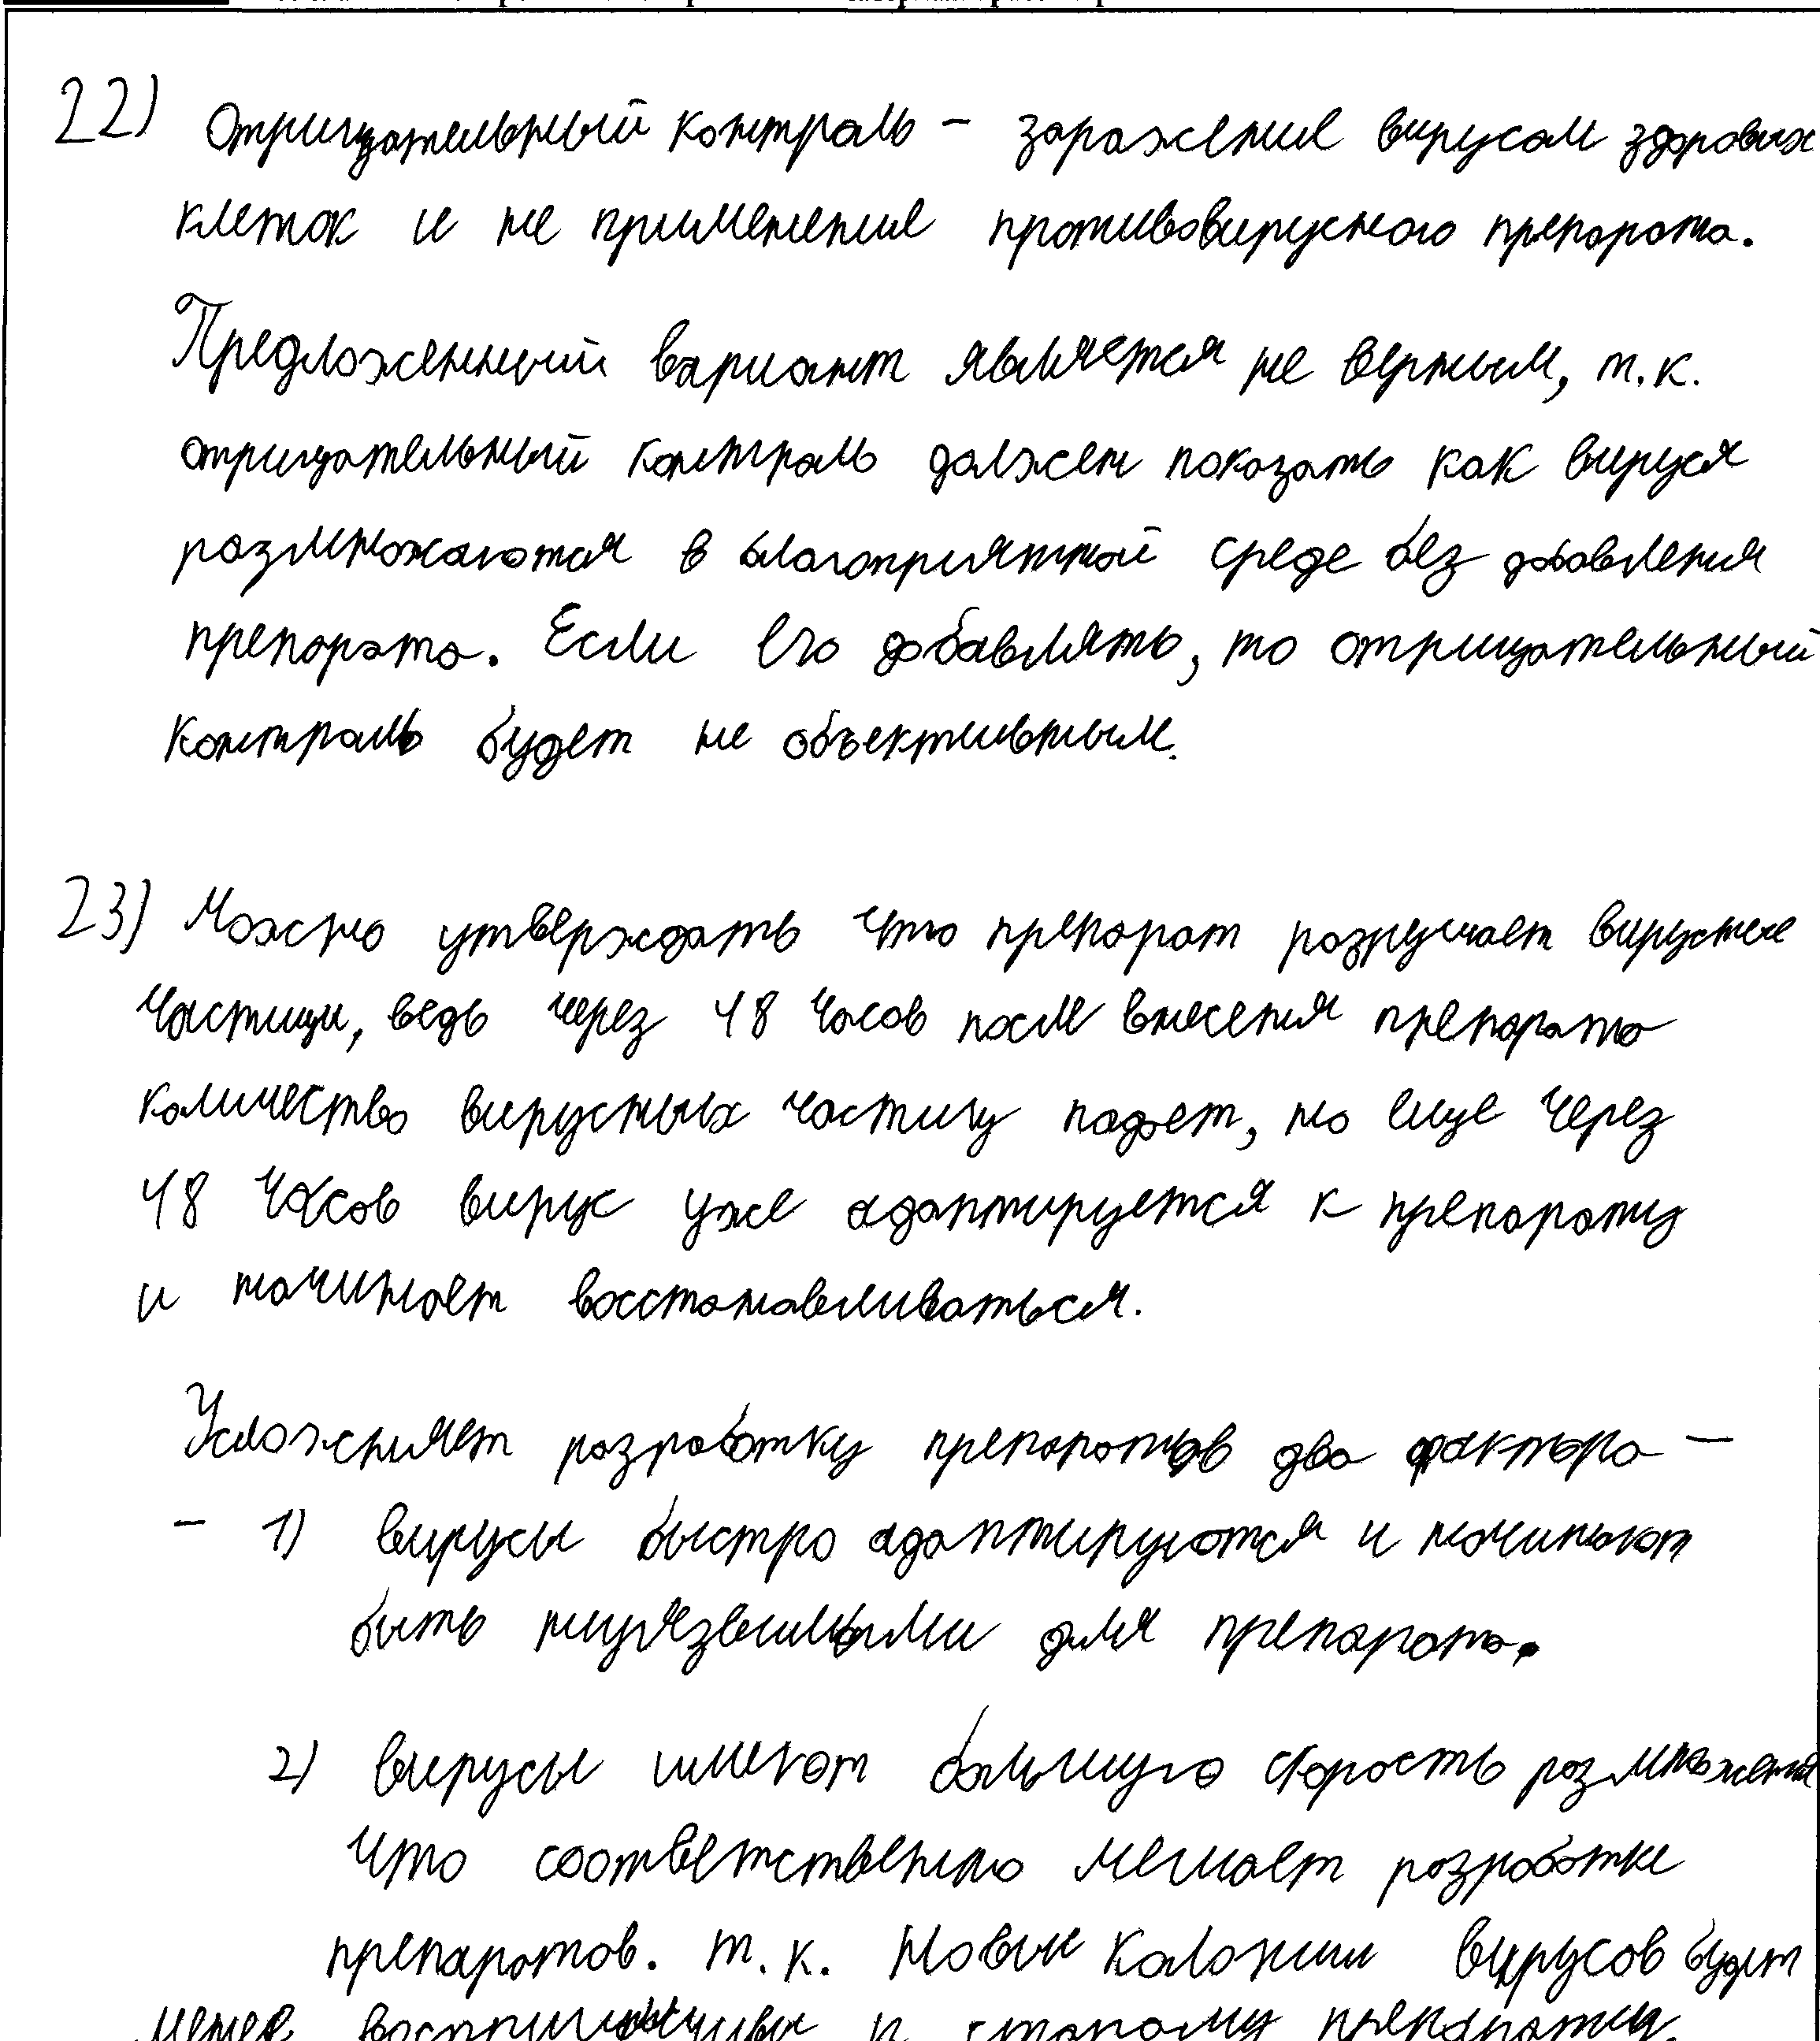 22) Отрицательный контроль – заражение вирусом здоровых
клеток и не применение противовирусного препарата.
Предложенный вариант является не верным, т.к.
отрицательный контроль должен показать как вируся
размножаются в благоприятной среде без добавления
препарата. Если его добавлять, то отрицательный
контроль будет не объективным.
23) Можно утверждать что препарат разрушает вирусные
частицы, ведь через 48 часов после внесения препарата
количество вирусных частиц падает, но еще через
48 часов вирус уже адаптируется к препарату
и начинает восстанавливаться.
Усложняет разработку препаратов два фактора –
– 1) вирусы быстро адаптируются и начинают
быть для препарата.
2) вирусы имеют большую скорость размножения
что соответственно мешает разработке
препаратов. т.к. новые колонии вирусов будет
менее восприимчивы к старому препарату.